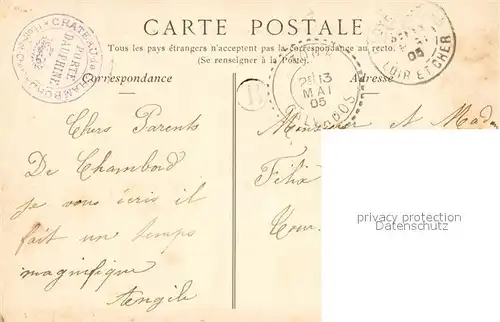 CARTE POSTALE
Tous les pays étrangers n'acceptent pas la correspondance au recto.
(Se renseigner à la Poste).
Correspondance
Adresse
CHATEAU de CHAMBORD
PORTE DAUPHINE
13
MAI
05
05
LOIR ET CHER
B
Chers Parents
De Chambord
je vous écris il
fait un temps
magnifique
Monsieur et Madame
Félix
Cour
privacy protected
privacy protected